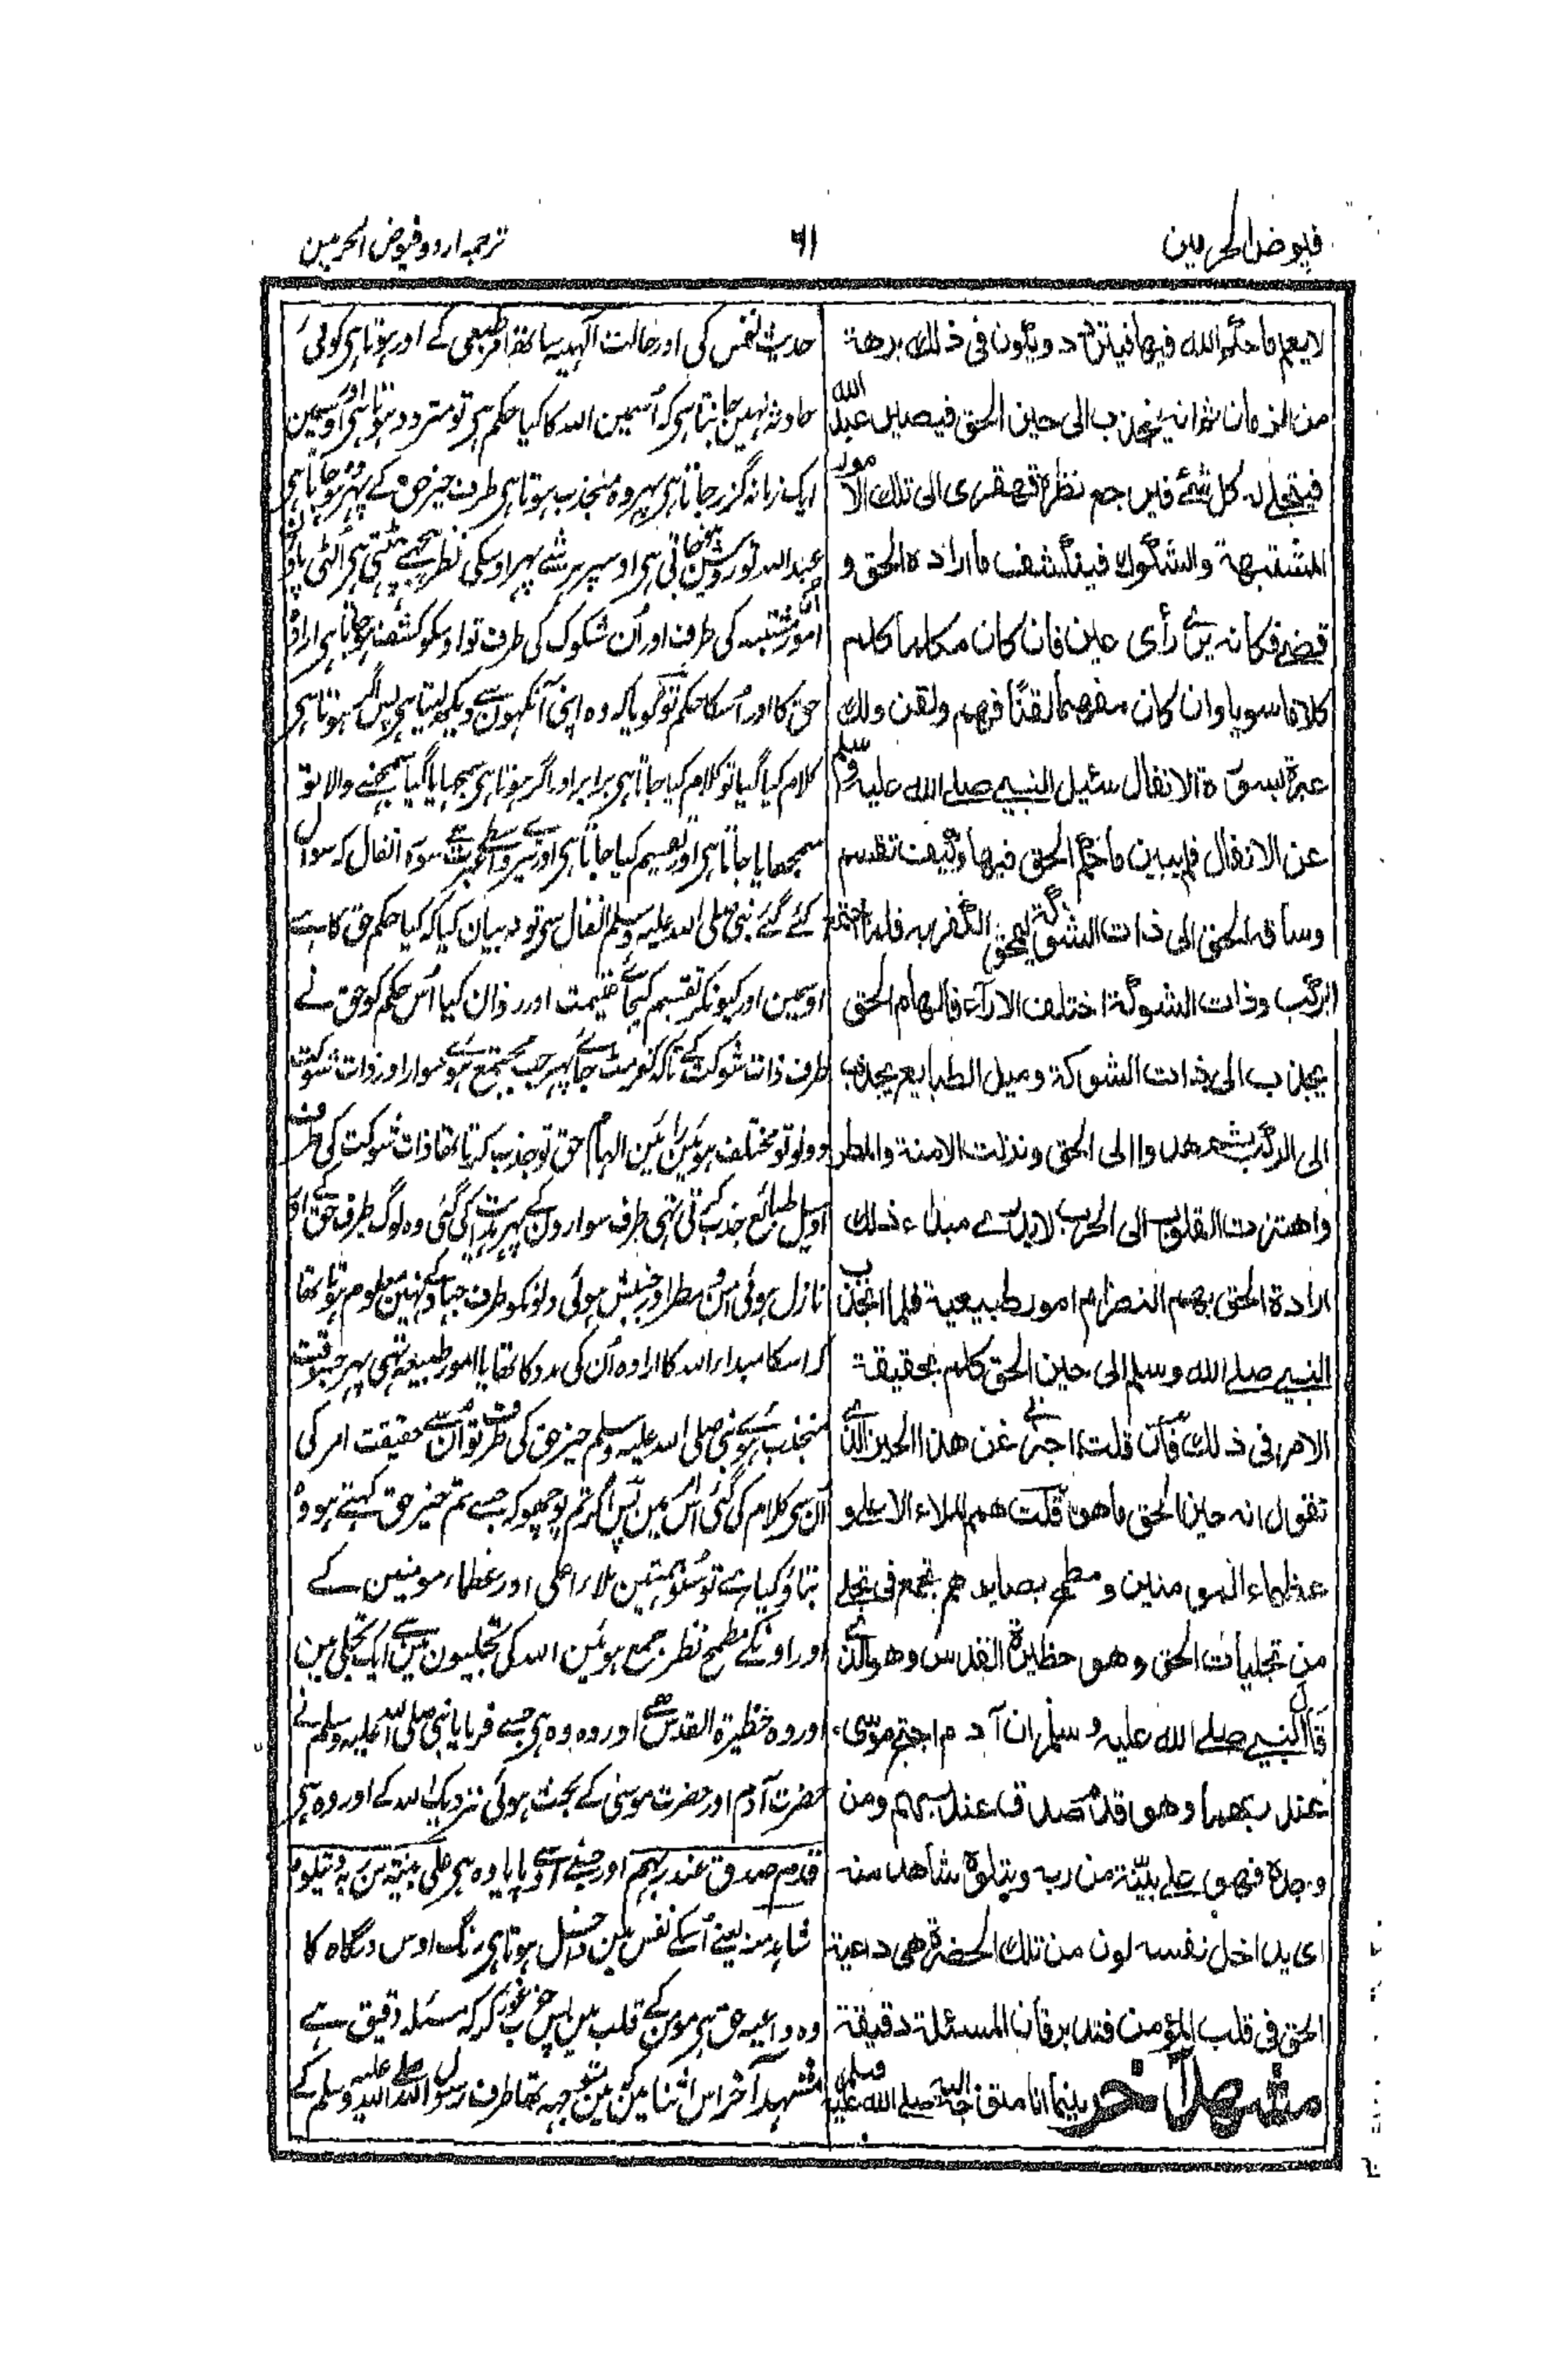 فیوض الحرمین
۶۱
ترجمہ اردو فیوض الحرمین
لا یعلم ما حکم الله فیها فیتردد ویکون فی ذلك برهة
من الزمان ثم انه ینجذب الی حیز الحق فیصیر عبد الله
فیتجلی له كل شئ فیرجع نظره قهقری الی تلك الامور
المشتبهة والشکوك فینکشف ما اراده الحق و
قضی فکانه یری رأی عین فان کان مکلما کلم
کلاما سویا وان کان مفهما لقنا فهم ولقن ولك
عبرة بسورة الانفال سئیل النبی صلے الله علیه وسلم
عن الانفال فلم یبین ما حکم الحق فیها وکیف تقسم
وساقه الحق الی ذات الشوکة لیمحق الکفر به فلما اجتمع
الرکب وذات الشوکة اختلف الاراء فالهام الحق
یجذب الی ذات الشوکة ومیل الطبایع یجذب
الی الرکب ثم هدوا الی الحق ونزلت الامنة والمطر
واهتزت القلوب الی الحرب لا یدری مبداء ذلك
ارادة الحق بهم النصر ام امور طبیعیة فلما انجذب
النبی صلے الله وسلم الی حیز الحق کلم بحقیقة
الامر فی ذلك فان قلت اخبرنی عن هذا الحیز الذی
تقول انه حیز الحق ما هو قلت همم الملاء الاعلی و
عظماء المومنین ومطمح بصایرهم تجمع فی تجلی
من تجلیات الحق وهو حظیرة القدس وهو الذی
قال النبی صلے الله علیه وسلم ان آدم احتج موسی
عند ربهما وهو قدم صدق عند ربهم ومن
وجده فهو علی بینة من ربه ویتلوه شاهد منه
ای یداخل نفسه لون من تلك الحضرة هی داعیة
الحق فی قلب المؤمن فتدبر فان المسئلة دقیقة
مشهد آخر بینما انا متوجه الیه صلے الله علیه وسلم
حدیث نفس کی اور حالت الٰہیہ ساتھ امر طبیعی کے اور ہوتا ہی کوئی
حادثہ نہین جانتا ہی کہ اُسمین اللہ کا کیا حکم ہی تو متردد ہوتا ہی اور اُسمین
ایک زمانہ گزر جاتا ہی پہر وہ منجذب ہوتا ہی طرف حیز حق کے پہر وہ ہو جاتا ہی
عبداللہ تو روشن ہو جاتی ہی اوسپر ہر شے پہر اوسکی نظر پیچھے ہٹتی ہی اُلٹی پاؤن
اُن امور مشتبہ کی طرف اور اُن شکوک کی طرف تو اوسکو کشف ہو جاتا ہی ارادہ
حق کا اور اُسکا حکم تو گویا کہ وہ اپنی آنکھون سے دیکھ لیتا ہی پس اگر ہوتا ہی
کلام کیا گیا تو کلام کیا جاتا ہی برابر اور اگر ہوتا ہی سمجھایا گیا سمجھنے والا تو
سمجھایا جاتا ہی اور تفہیم کیا جاتا ہی اور تیرے واسطے عبرت ہے سورہ انفال کہ سوال
کئے گئے نبی صلی اللہ علیہ وسلم انفال سے تو نہ بیان کیا کہ کیا حکم حق کا ہے
اوسمین اور کیونکر تقسیم کیجائے غنیمت اور روان کیا اُس حکم کو حق نے
طرف ذات شوکت کے تاکہ کفر مٹ جائے پہر جب مجتمع ہوئے سوار اور ذات شوکت
دونو تو مختلف ہوئین رائین الہام حق تو جذب کرتا تھا ذات شوکت کی طرف
اور میل طبائع جذب کرتی تہی طرف سوارون کے پہر ہدایت کی گئی وہ لوگ طرف حق کے اور
نازل ہوئی امن و مطر اور جنبش ہوئی دلونکو طرف جہاد کے نہین معلوم ہوتا تھا
کہ اسکا مبدا راللہ کا ارادہ اُن کی مدد کا تھا یا امور طبیعیہ تہی پہر جسوقت
منجذب ہوئے نبی صلی اللہ علیہ وسلم حیز حق کی طرف تو اُن سے حقیقت امر کی
اُن سی کلام کی گئی اُس مین پس اگر تم پوچھو کہ جسے تم حیز حق کہتے ہو وہ
بتاؤ کیا ہے تو سُنو ہمتین ملاء اعلی اور عظماء مومنین کے
اور اونکے مطمح نظر جمع ہوئین اللہ کی تجلیون مین سے ایک تجلی مین
اور وہ حظیرۃ القدس ہے اور وہ وہ ہی جسے فرمایا نبی صلی اللہ علیہ وسلم نے
حضرت آدم اور حضرت موسیٰ کے بحث ہوئی نزدیک اللہ کے اور وہ ہی
قدم صدق عند ربہم اور جسنے اُسے پایا وہ ہی علی بینۃ من ربہ و یتلوہ
شاہد منہ یعنے اُسکے نفس مین داخل ہوتا ہی رنگ اوس درگاہ کا
وہ داعیہ حق ہی مومن کے قلب مین پس خوب غور کر کہ مسئلہ دقیق ہے
مشہد آخر اس اثنا مین کہ مین متوجہ تھا طرف رسول اللہ صلی اللہ علیہ وسلم کے